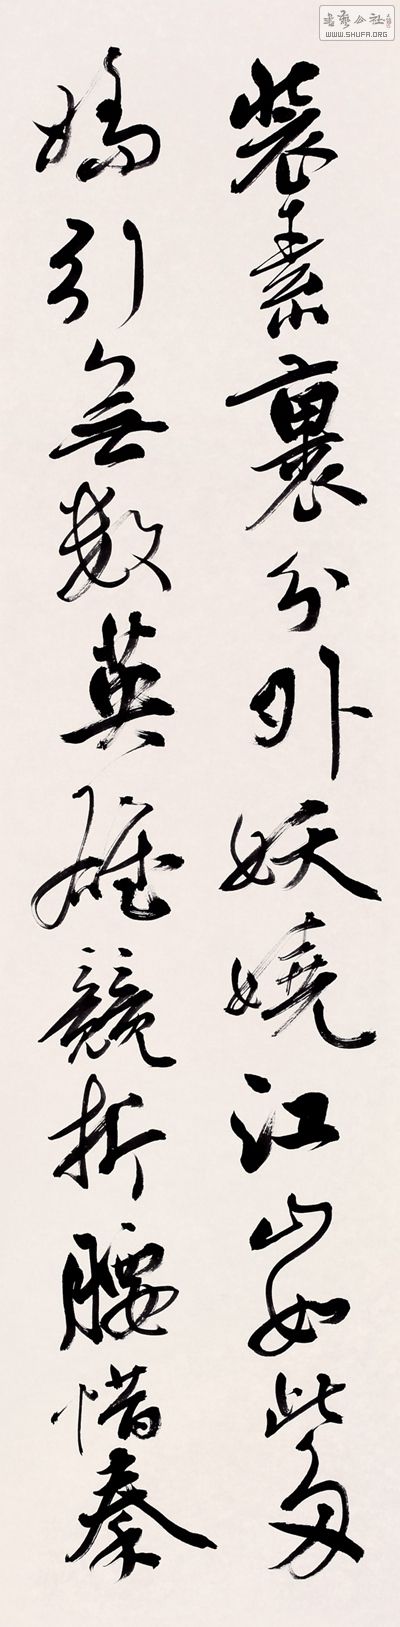 裝素裹分外妖嬈江山如此多
嬌引無數英雄競折腰惜秦
書藝公社
WWW.SHUFA.ORG